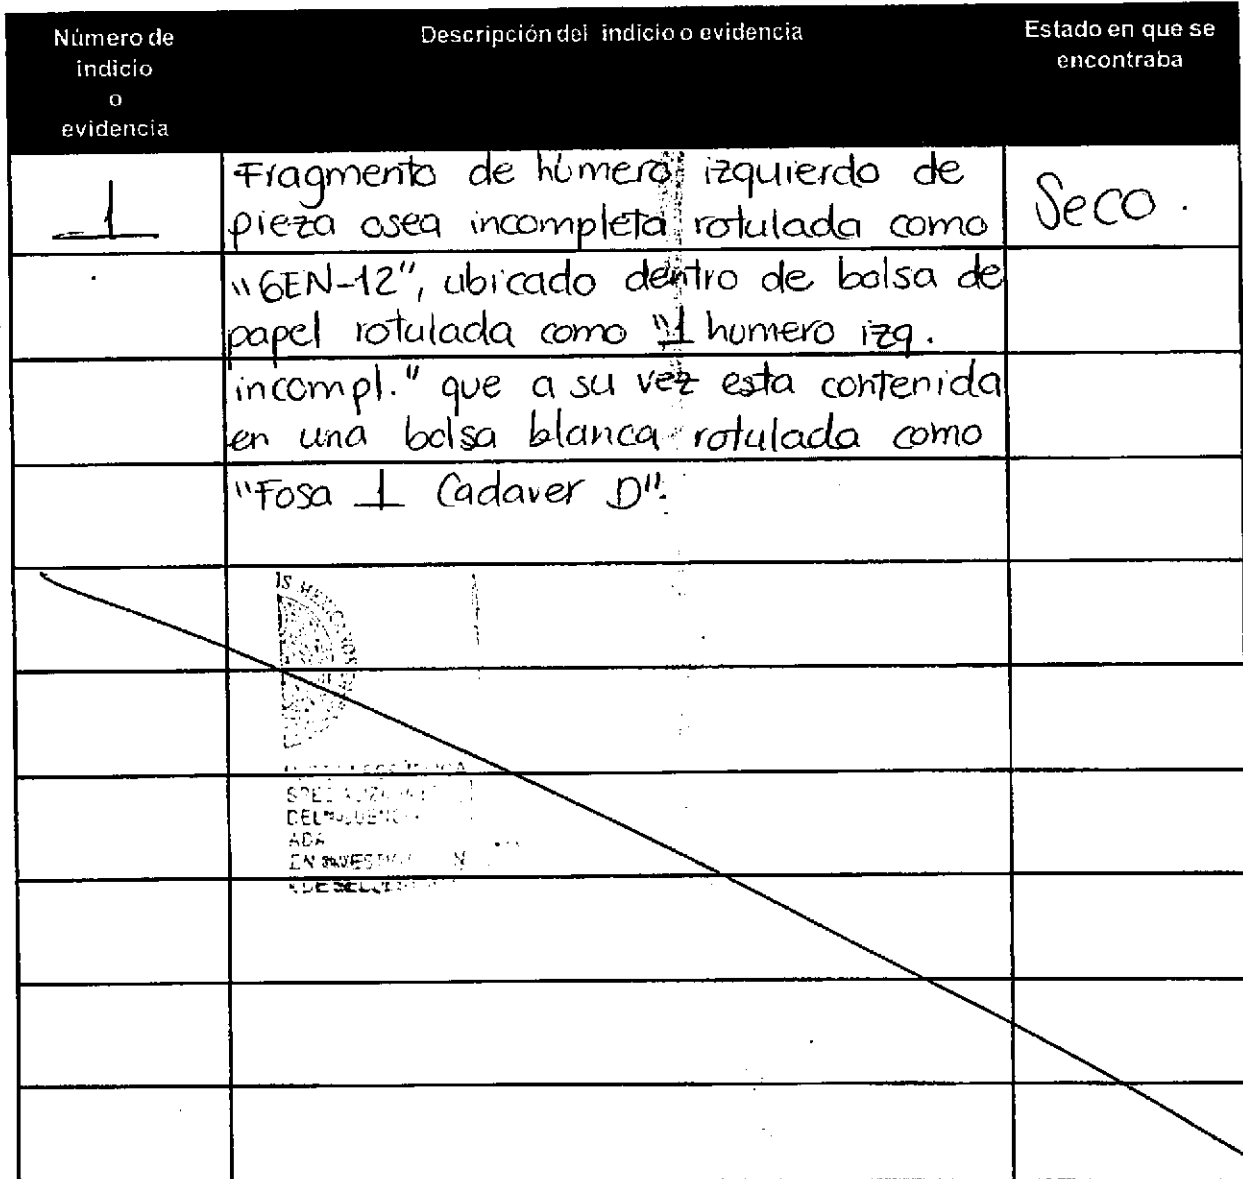 Número de
indicio
o
evidencia
Descripción del indicio o evidencia
Estado en que se
encontraba
1
Fragmento de húmero izquierdo de
pieza osea incompleta rotulada como
"GEN-12", ubicado dentro de bolsa de
papel rotulada como "1 humero izq.
incompl." que a su vez esta contenida
en una bolsa blanca rotulada como
"Fosa 1 Cadaver D".
Seco.
ADA